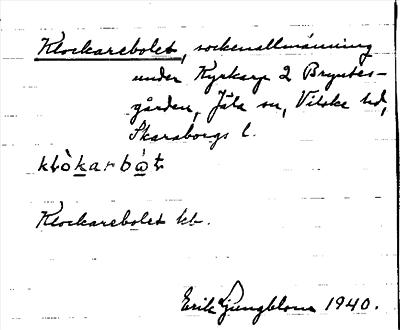 Klockarebolet, sockenallmänning
under Kyrkarp 2 Bryntes-
gården, Jäla sn, Vilske hd,
Skaraborgs l.
klòkarbòt.
Klockarebolet kb.
Erik Ljungblom 1940.